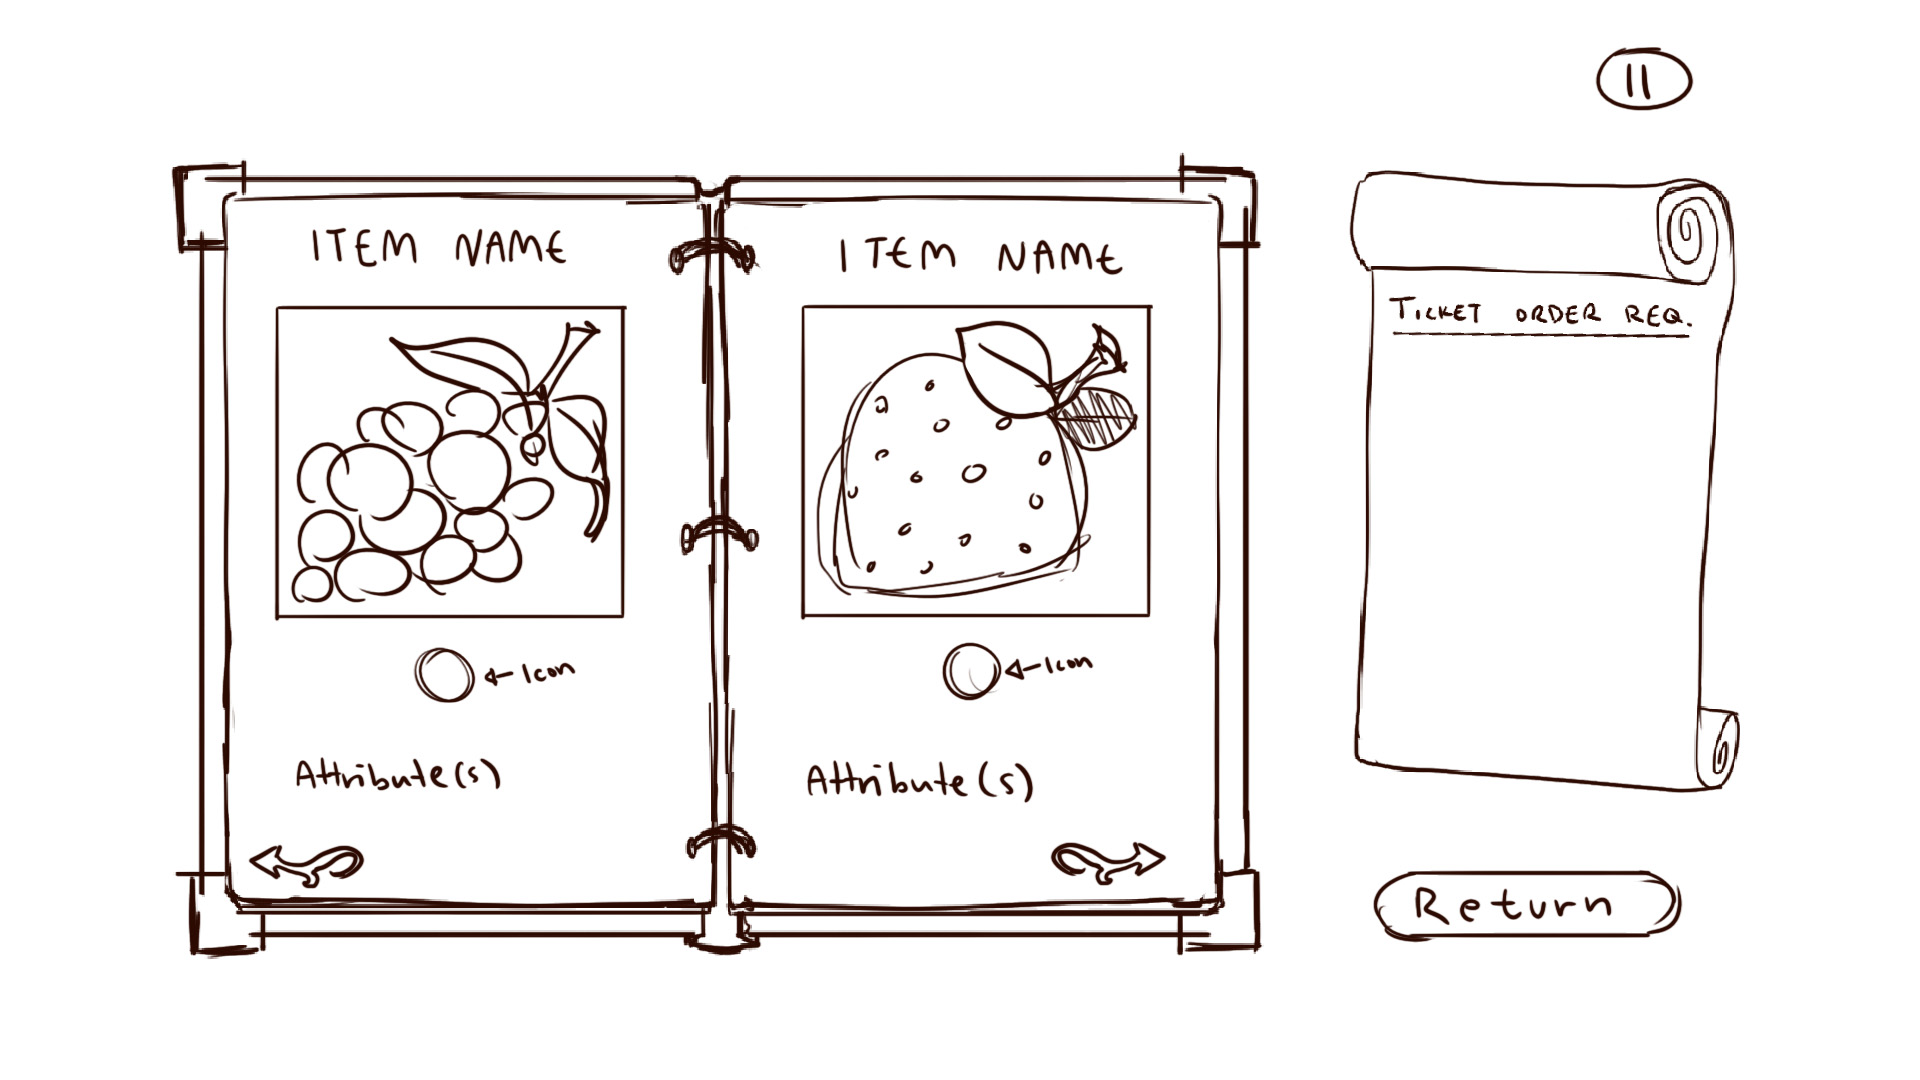 ITEM NAME
Icon
Attribute(s)
ITEM NAME
Icon
Attribute(s)
TICKET ORDER REQ.
Return